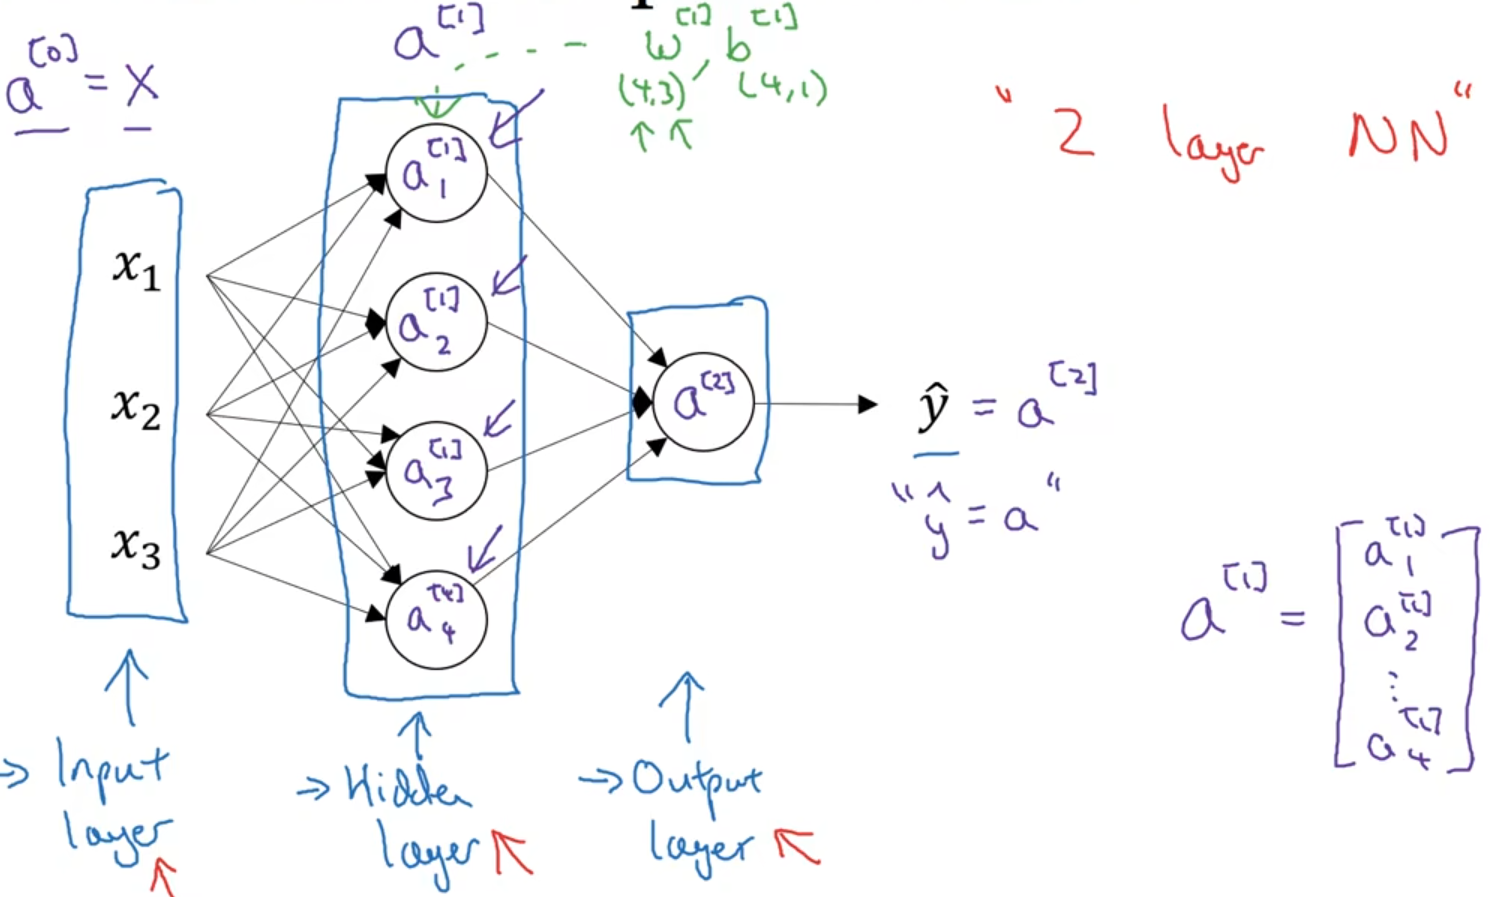 a^[0] = X
a^[1]
w^[1], b^[1]
(4,3) (4,1)
"2 layer NN"
x₁
x₂
x₃
a₁^[1]
a₂^[1]
a₃^[1]
a₄^[4]
a^[2]
ŷ = a^[2]
"ŷ = a"
a^[1] = [a₁^[1]
a₂^[1]
⋮
a₄^[1]]
→ Input
layer
→ Hidden
layer
→ Output
layer